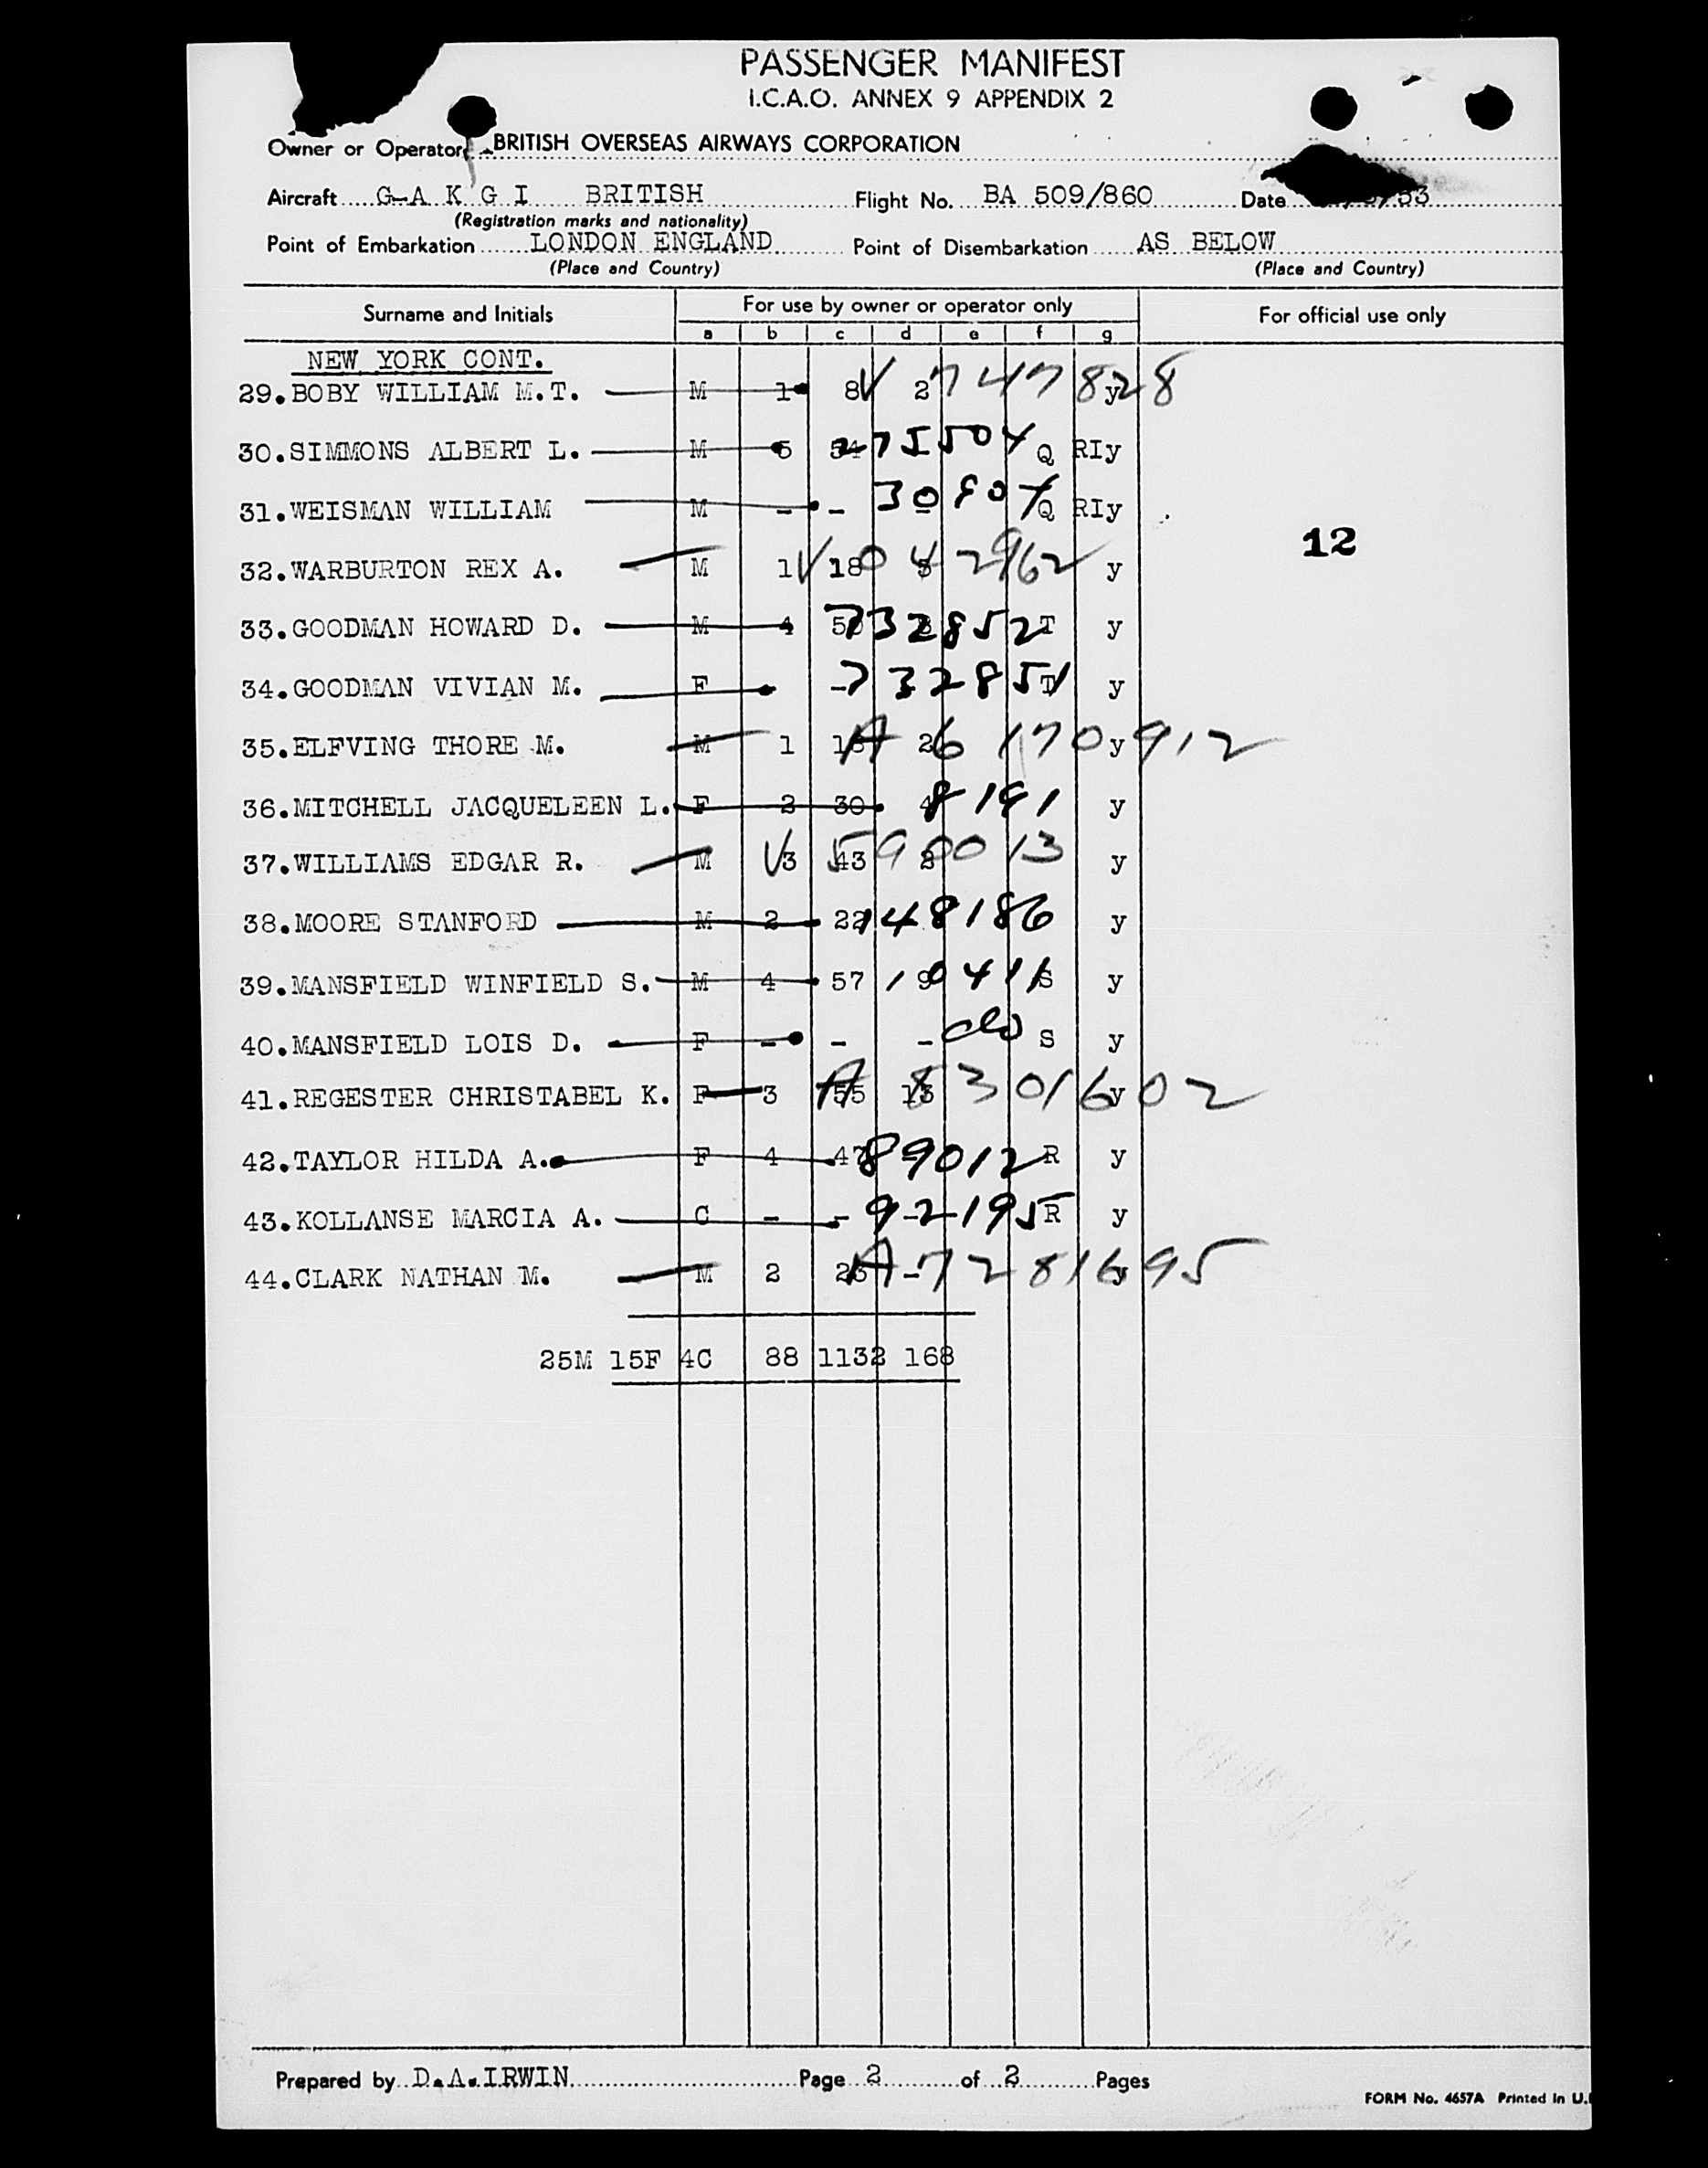 PASSENGER MANIFEST
I.C.A.O. ANNEX 9 APPENDIX 2
Owner or Operator BRITISH OVERSEAS AIRWAYS CORPORATION
Aircraft G-A K G I BRITISH Flight No. BA 509/860 Date /53
(Registration marks and nationality)
Point of Embarkation LONDON ENGLAND Point of Disembarkation AS BELOW
(Place and Country) (Place and Country)
Surname and Initials For use by owner or operator only For official use only
a b c d e f g
NEW YORK CONT.
29. BOBY WILLIAM M.T. M 1 8 2 V 7447828 y
30. SIMMONS ALBERT L. M 5 54 Q RIy
31. WEISMAN WILLIAM M - - - Q RIy
12
32. WARBURTON REX A. M 1 18 y
33. GOODMAN HOWARD D. M 4 732852 T y
34. GOODMAN VIVIAN M. F - - 732851 T y
35. ELFVING THORE M. M 1 2 A6170912 y
36. MITCHELL JACQUELEEN L. F 2 30 4 8191 y
37. WILLIAMS EDGAR R. M 3 43 2 V590013 y
38. MOORE STANFORD M 2 22 148186 y
39. MANSFIELD WINFIELD S. M 4 57 9 10411 S y
40. MANSFIELD LOIS D. F - - - do S y
41. REGESTER CHRISTABEL K. F 3 55 13 A8301602 y
42. TAYLOR HILDA A. F 4 47 89012 R y
43. KOLLANSE MARCIA A. C - - - 92195 R y
44. CLARK NATHAN M. M 2 - A7281695 y
25M 15F 4C 88 1132 168
Prepared by D.A.IRWIN Page 2 of 2 Pages
FORM No. 4657A Printed in U.